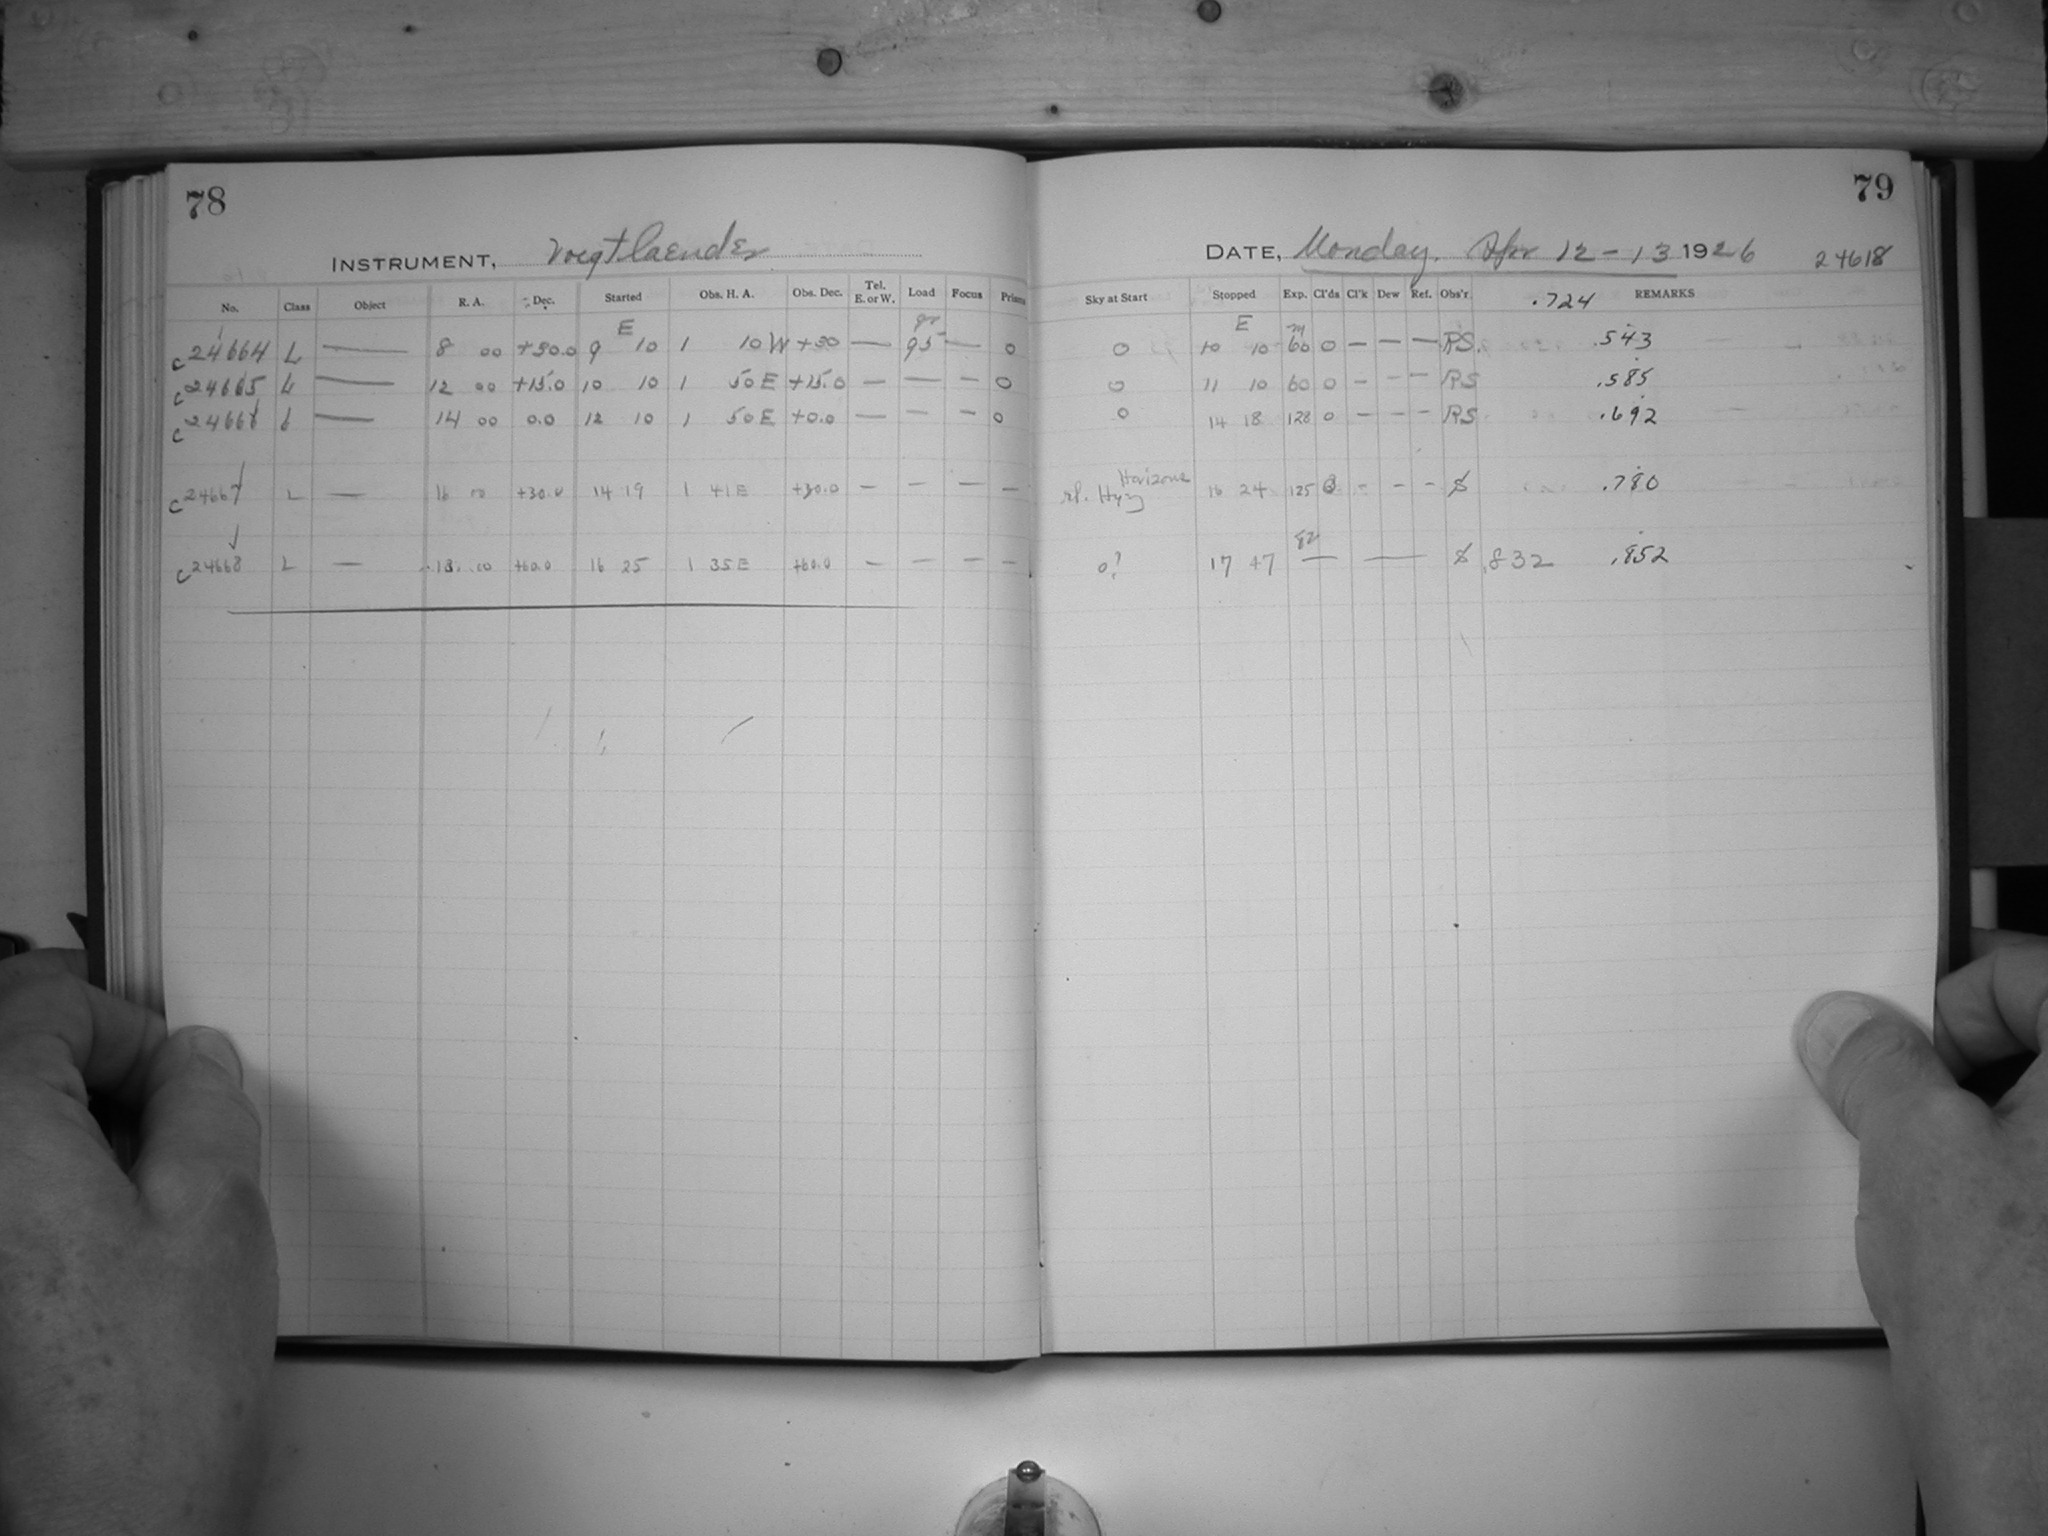 78
INSTRUMENT, Voigtlaender
No. Class Object R. A. Dec. Started Obs. H. A. Obs. Dec. Tel. E. or W. Load Focus Prism
E gr
c24664 L — 8 00 +30.0 9 10 1 10 W +30 — 95 — 0
c24665 L — 12 00 +15.0 10 10 1 50 E +15.0 — — — 0
c24666 L — 14 00 0.0 12 10 1 50 E +0.0 — — — 0
c24667 L — 16 00 +30.0 14 19 1 41 E +30.0 — — — —
c24668 L — 18 00 +60.0 16 25 1 35 E +60.0 — — — —
79
DATE, Monday. Apr 12-13 1926 24618
Sky at Start Stopped Exp. Cl'ds Cl'k Dew Ref. Obs'r. .724 REMARKS
E m
0 10 10 60 0 — — — RS. .543
0 11 10 60 0 — — — RS .585
0 14 18 128 0 — — — RS .692
Horizons
Hyzy 16 24 125 — — — S .780
82
0? 17 47 — — S .832 .852